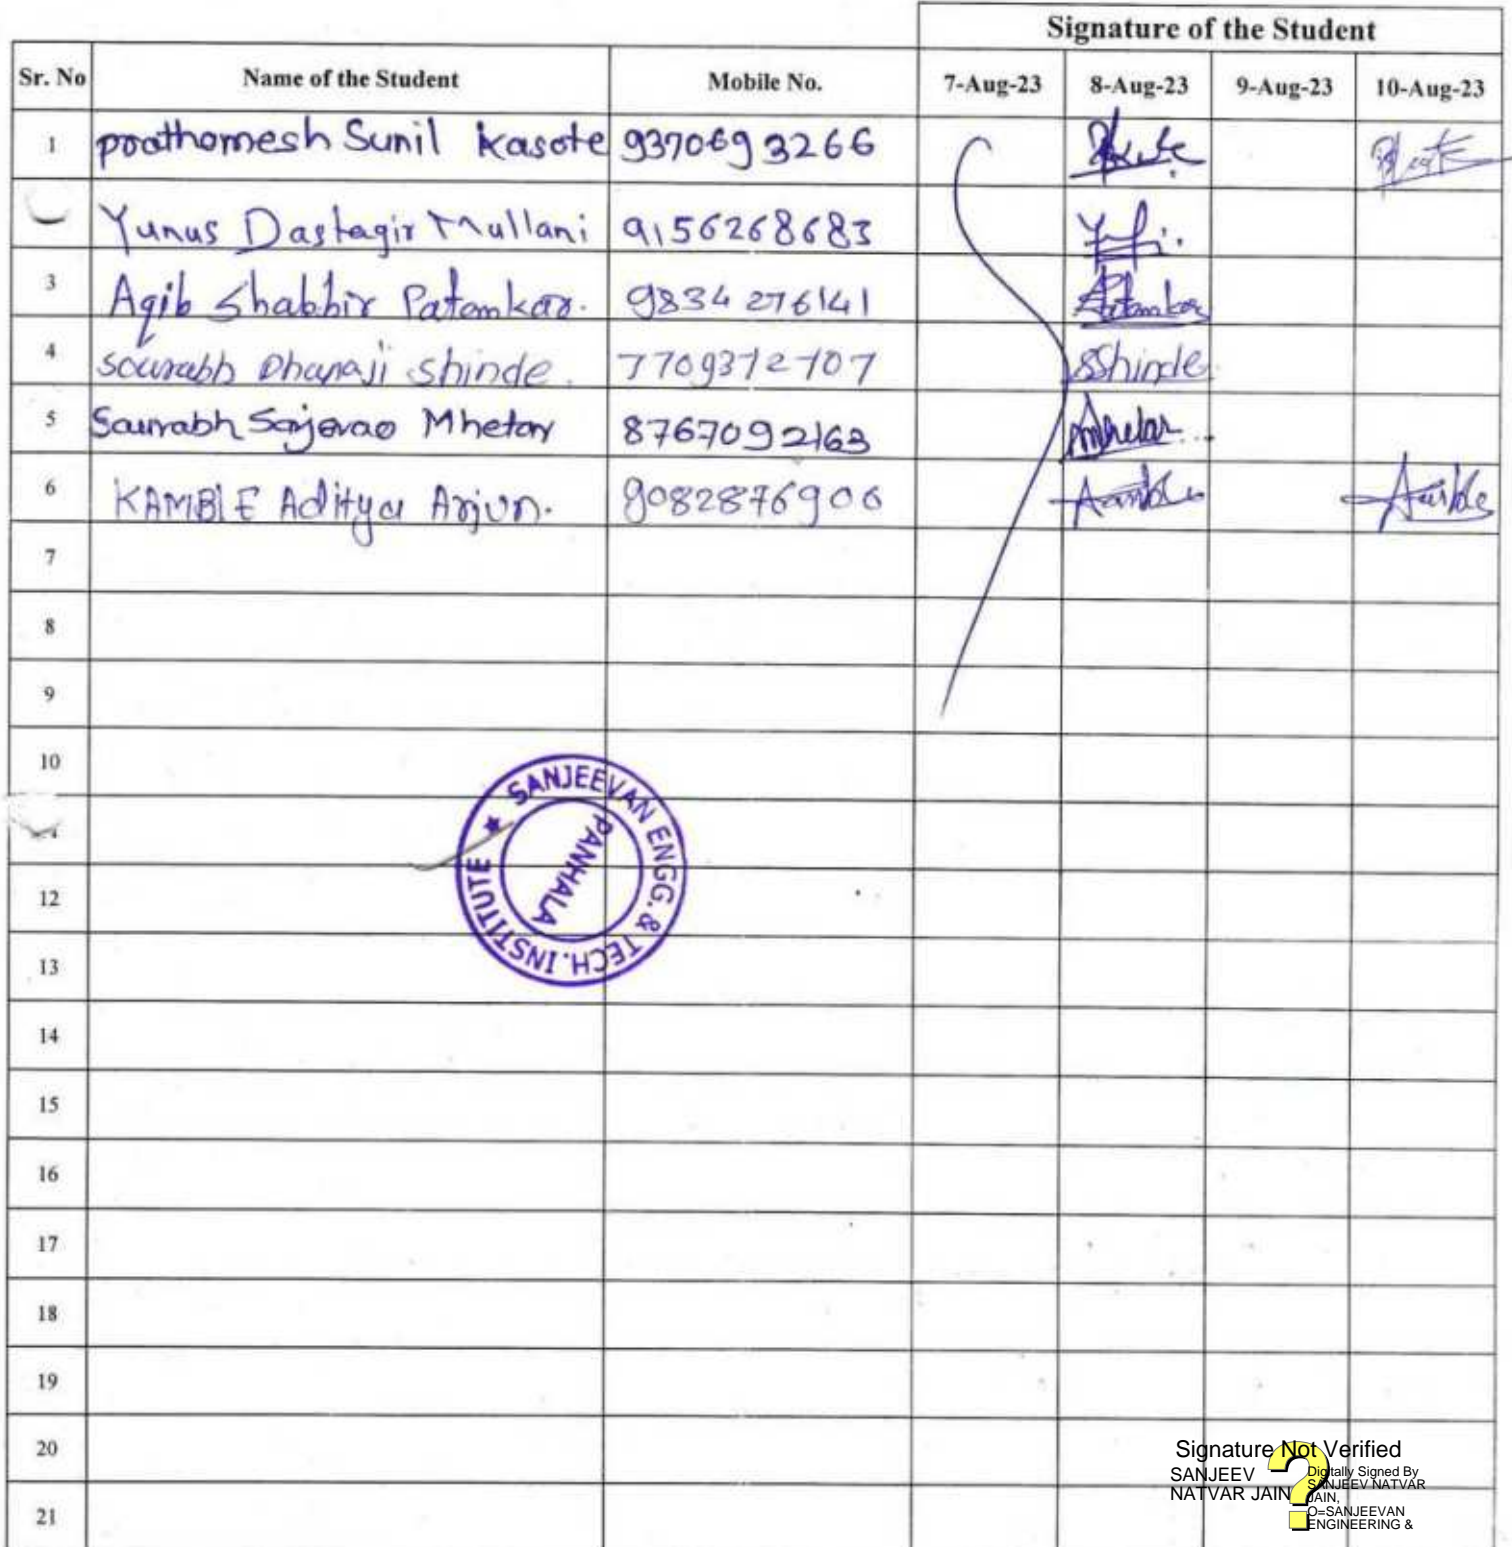 Signature of the Student
Sr. No Name of the Student Mobile No. 7-Aug-23 8-Aug-23 9-Aug-23 10-Aug-23
1 prathomesh Sunil Kasote 9370693266
Yunus Dastagir Mullani 9156268683
3 Aqib Shabbir Patankar. 9834276141 Patankar
4 sourabh Dhanaji shinde. 7709372707 SShinde
5 Saurabh Sajerao Mhetar 8767092163 Mhetar
6 KAMBLE Aditya Arjun. 9082876906
7
8
9
10
12
13
14
15
16
17
18
19
20
21
SANJEEVAN ENGG. & TECH. INSTITUTE ★
PANHALA
Signature Not Verified
SANJEEV
NATVAR JAIN
Digitally Signed By
SANJEEV NATVAR
JAIN,
O=SANJEEVAN
ENGINEERING &